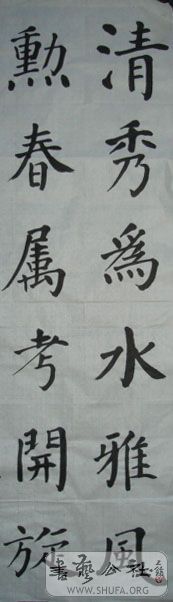 清秀為水雅風
勳春属考開旋
書藝公社
WWW.SHUFA.ORG